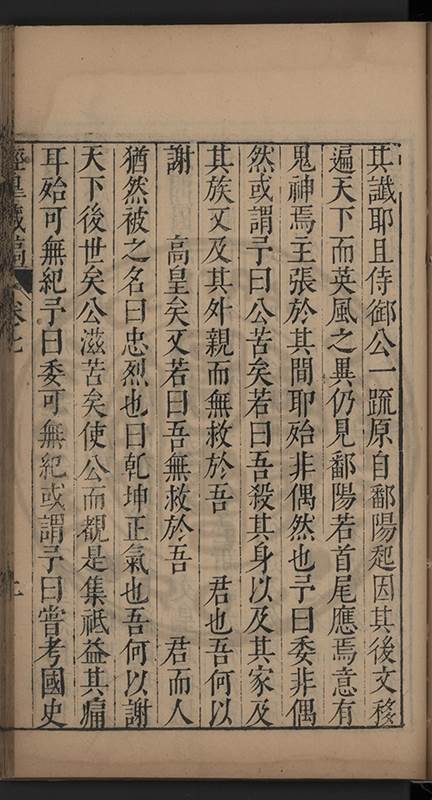 其讖耶且侍御公一䟽原自鄱陽起因其後文移
遍天下而英風之異仍見鄱陽若首尾應焉意有
鬼神焉主張於其間耶殆非偶然也予曰委非偶
然或謂予曰公苦矣若曰吾殺其身以及其家及
其族又及其外親而無救於吾 君也吾何以
謝 高皇矣又若曰吾無救於吾 君而人
猶然被之名曰忠烈也曰乾坤正氣也吾何以謝
天下後世矣公滋苦矣使公而覩是集祗益其痛
耳殆可無紀予曰委可無紀或謂予曰嘗考國史
卷七